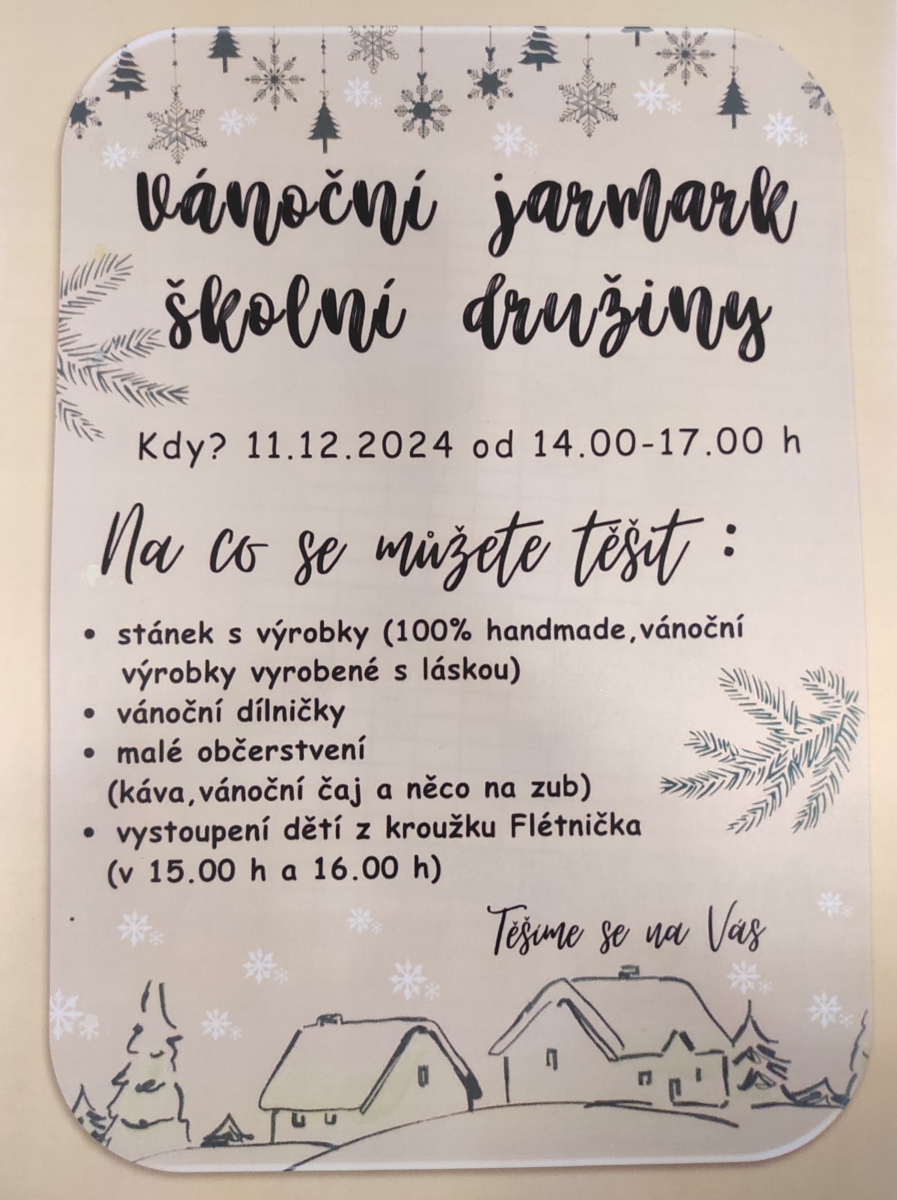 vánoční jarmark
školní družiny
Kdy? 11.12.2024 od 14.00-17.00 h
Na co se můžete těšit :
• stánek s výrobky (100% handmade,vánoční
výrobky vyrobené s láskou)
• vánoční dílničky
• malé občerstvení
(káva,vánoční čaj a něco na zub)
• vystoupení dětí z kroužku Flétnička
(v 15.00 h a 16.00 h)
Těšíme se na Vás